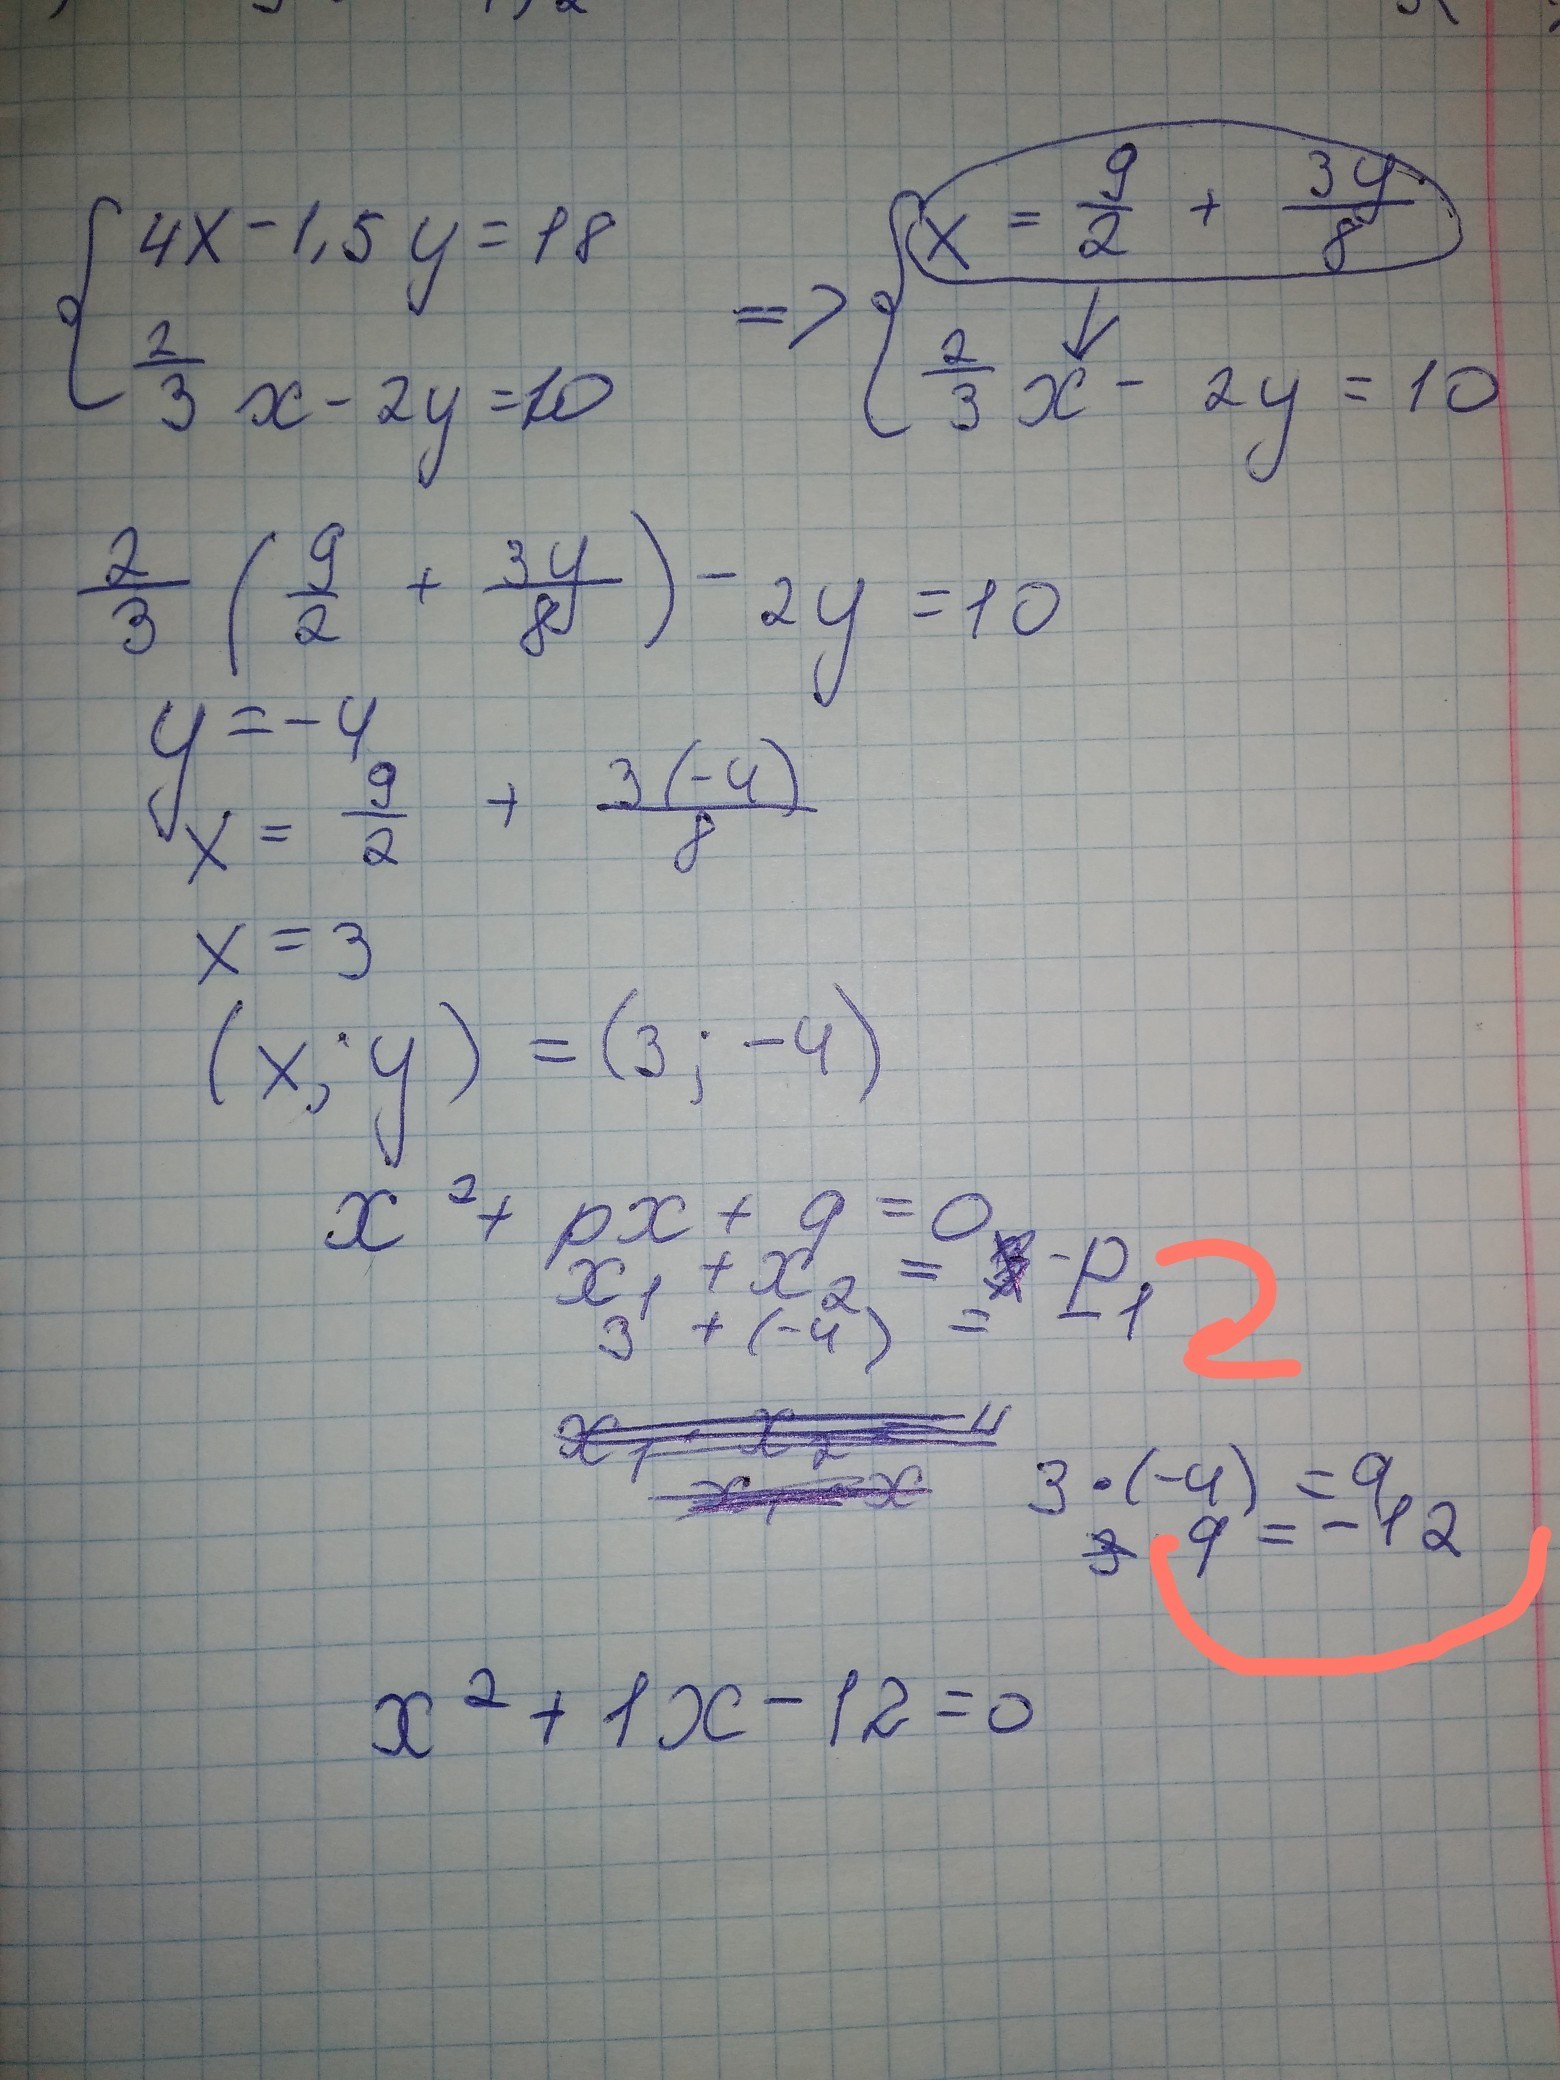 4x - 1,5y = 18 => x = 9/2 + 3y/8
2/3 x - 2y = 10 2/3 x - 2y = 10
2/3 (9/2 + 3y/8) - 2y = 10
y = -4
x = 9/2 + 3(-4)/8
x = 3
(x; y) = (3; -4)
x² + px + q = 0
x₁ + x₂ = -p₁
3 + (-4) =
2
x₁ · x₂
3 · (-4) = q
q = -12
x² + 1x - 12 = 0